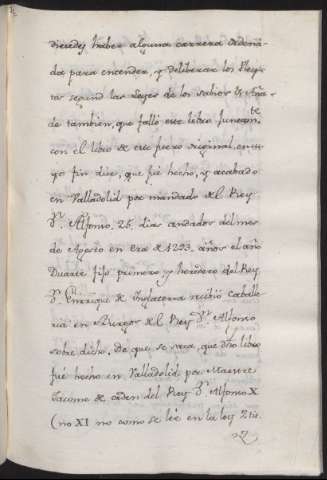 diessedes haber alguna carrera ordena-
da para entender, y deliberar los Pley-
tos segund las Leyes de los sabios Es Aña-
de tambien, que falló este libro juntam.te
con el libro de este fuero original, en cu-
yo fin dice, que fué hecho, y acabado
en Valladolid por mandado del Rey
D.n Alfonso, 25. dias andados del mes
de Agosto en Era de 1293. años el año
Duarte fijo primero y heredero del Rey
D.n Enrrique de Inglaterra recibió Caballe-
ria en Burgos del Rey D.n Alfonso
sobre dicho. de que se saca, que dho libro
fué hecho en Valladolid por Maestre
Jacome de orden del Rey D.n Alfonso X
(no XI no como se leé en la ley 2 tit.
27